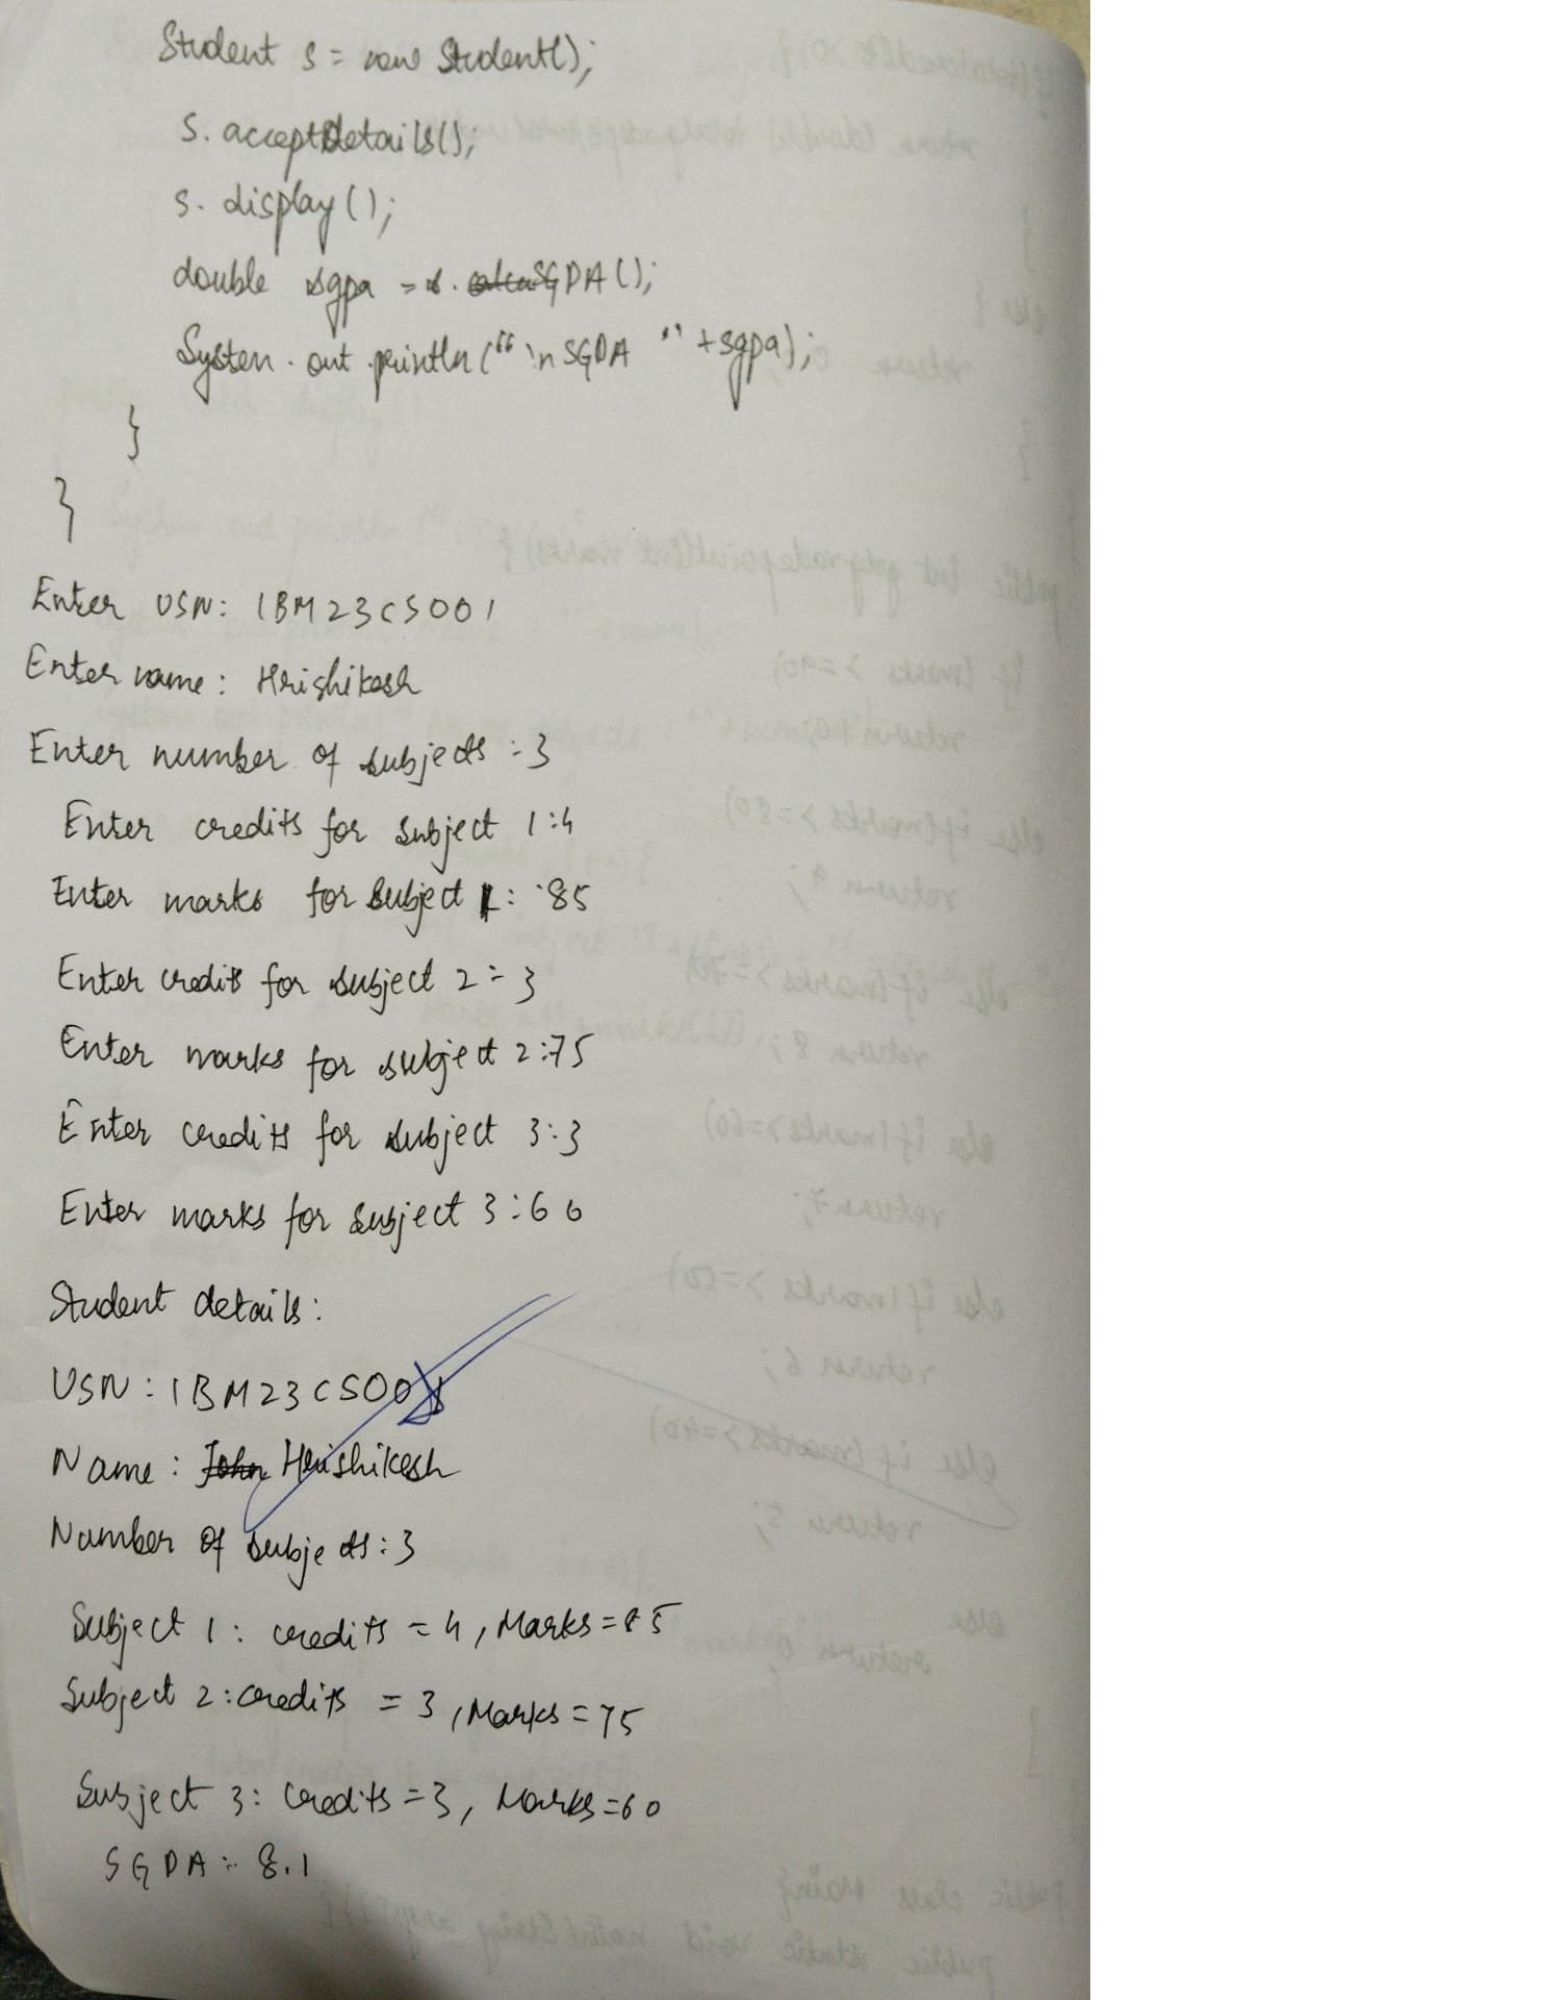 Student s = new Student();
s. acceptDetails();
s. display();
double sgpa = s. calcuSGPA();
System. out. println (“ \n SGPA ” + sgpa);
}
}
Enter USN: 1BM23CS001
Enter name: Hrishikesh
Enter number of subjects :3
Enter credits for subject 1:4
Enter marks for subject 1: 85
Enter credits for subject 2: 3
Enter marks for subject 2:75
Enter credits for subject 3:3
Enter marks for subject 3:66
Student details:
USN: 1BM23CS001
Name: John Hrishikesh
Number of subjects:3
Subject 1: credits = 4, Marks=85
Subject 2: credits = 3, Marks=75
Subject 3: Credits =3, Marks=60
SGPA: 8.1